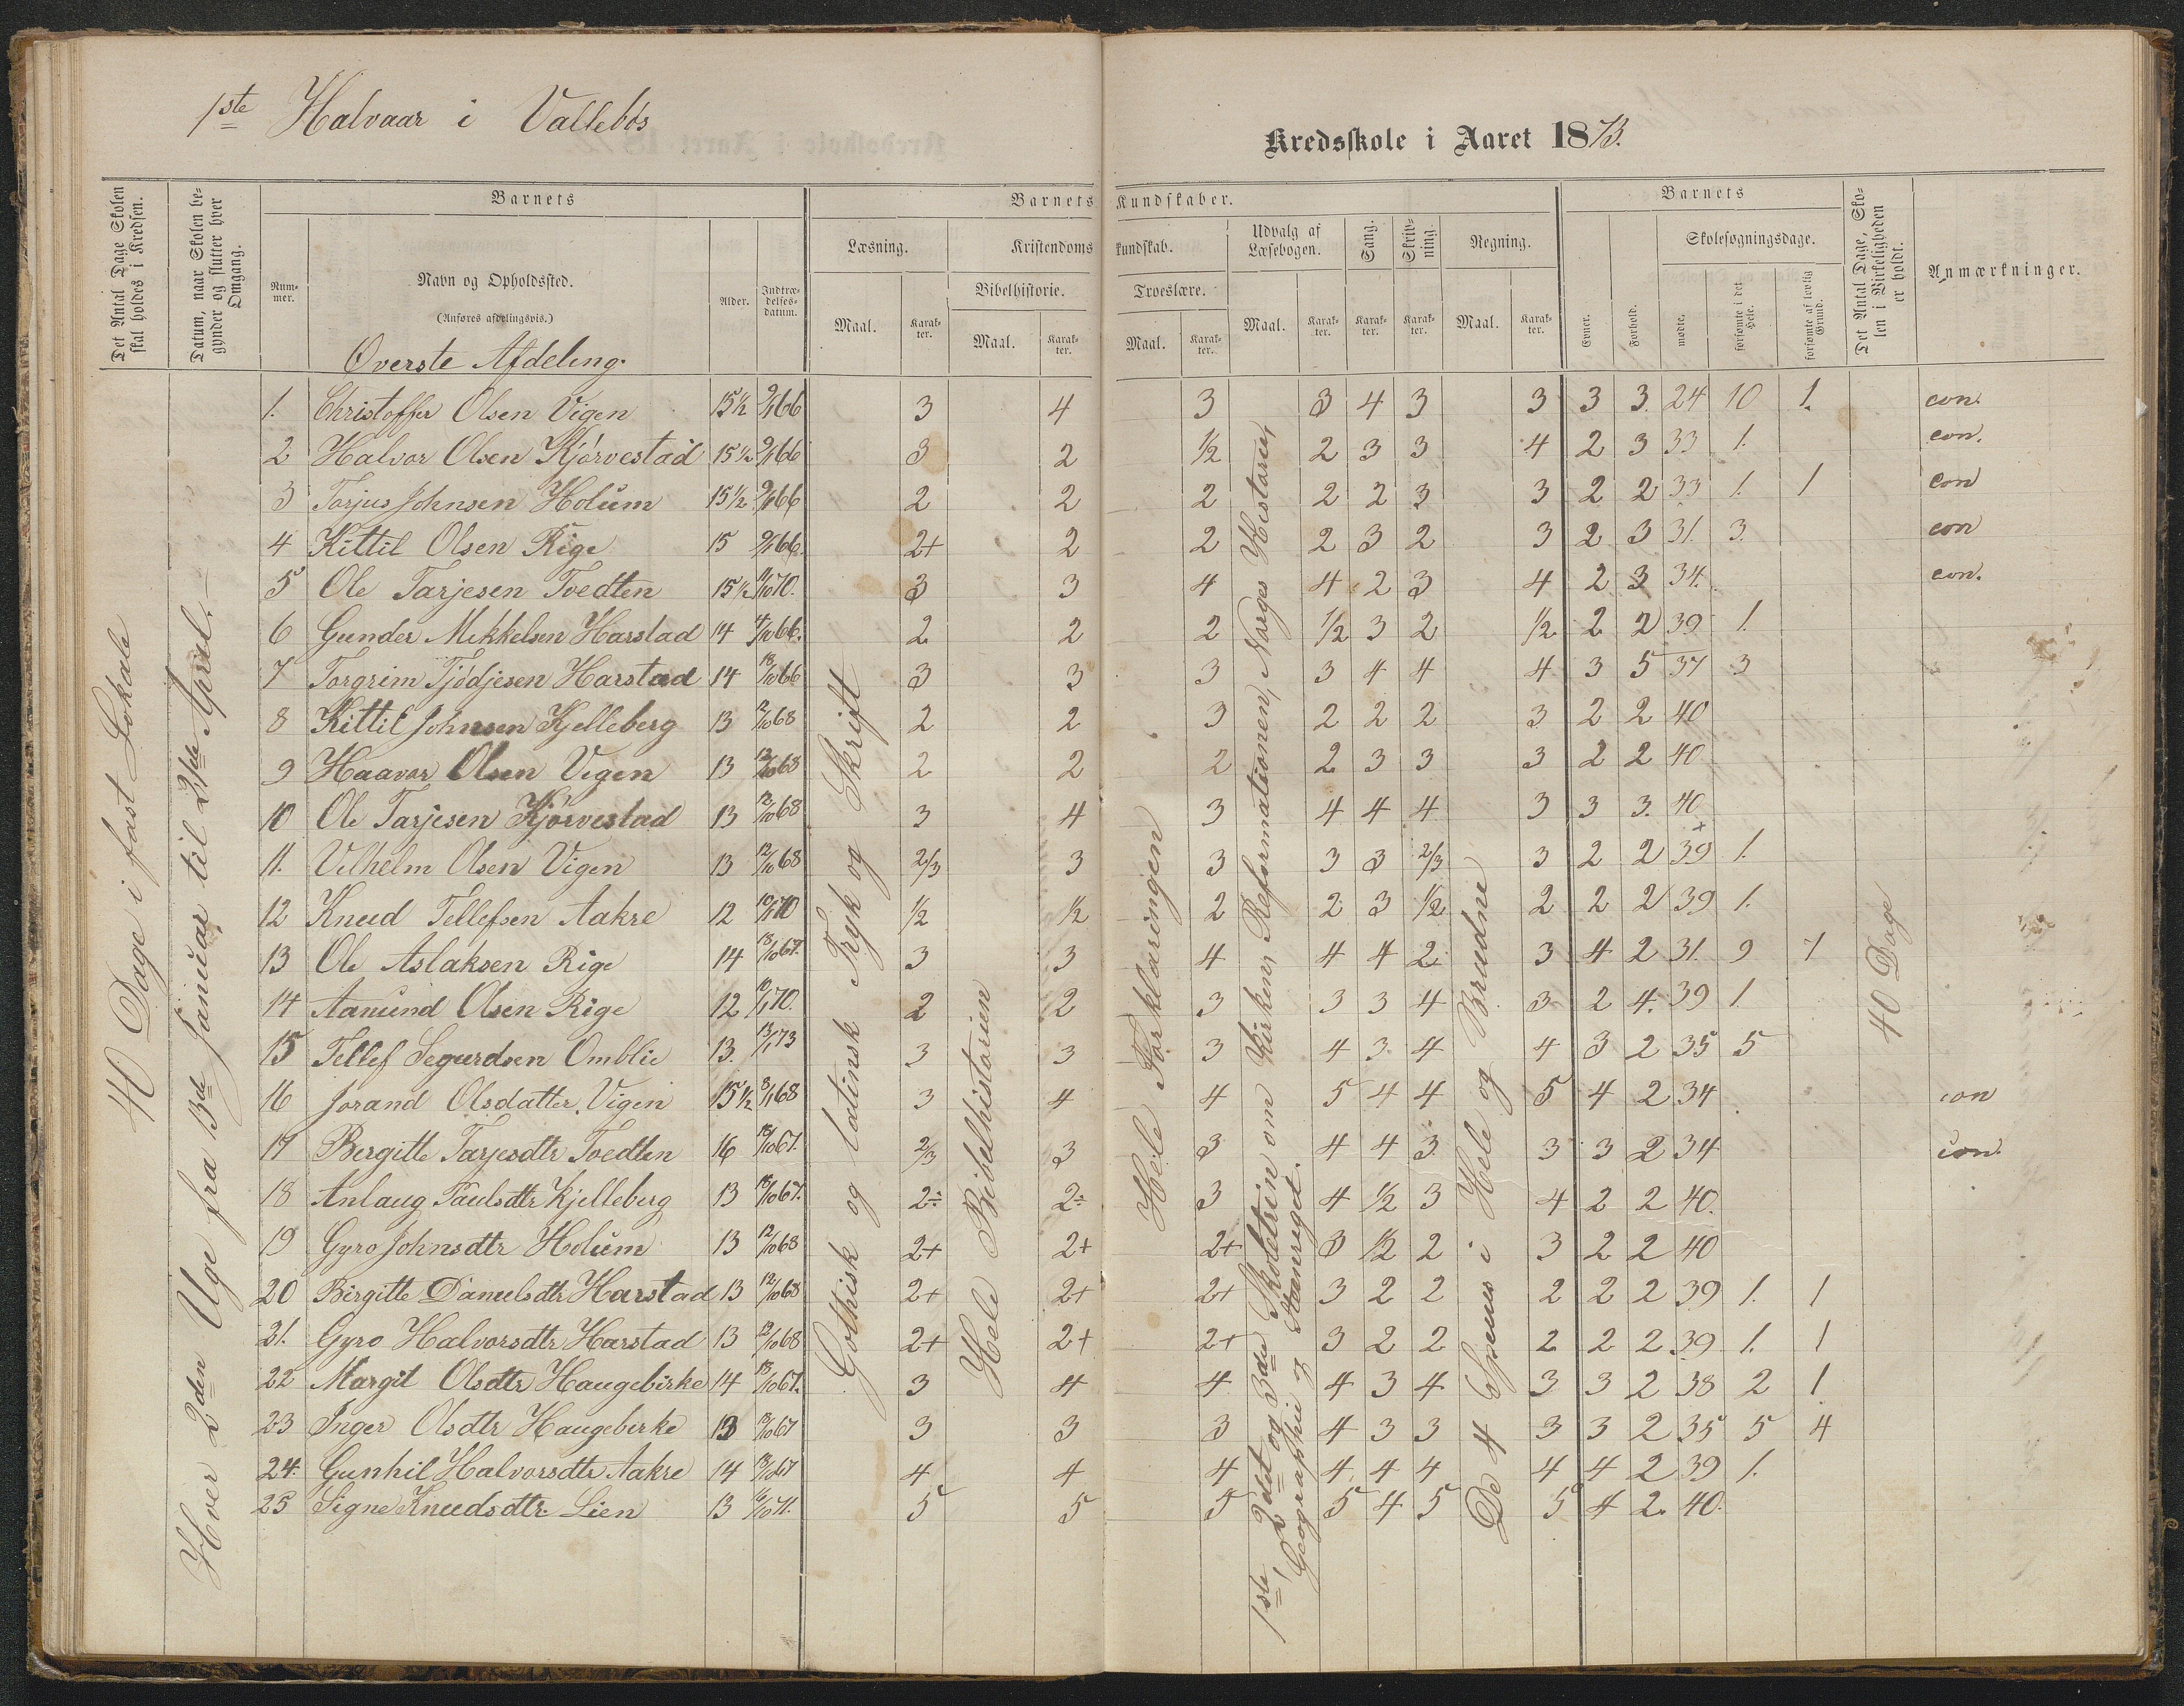 1ste Halvaar i Vallebøs
Kredsskole i Aaret 1873.
Det Antal Dage Skolen skal holdes i Kredsen.
Datum, naar Skolen begynder og slutter hver Omgang.
Barnets
Nummer.
Navn og Opholdssted.
(Anføres afdelingsvis.)
Alder.
Indtrædelsesdatum.
Barnets Kundskaber.
Læsning.
Maal.
Karakter.
Kristendomskundskab.
Bibelhistorie.
Maal.
Karakter.
Troeslære.
Maal.
Karakter.
Udvalg af Læsebogen.
Maal.
Karakter.
Sang.
Karakter.
Skrivning.
Karakter.
Regning.
Maal.
Karakter.
Barnets
Evner.
Forhold.
Skolesøgningsdage.
mødte.
forsømte i det Hele.
forsømte af lovlig Grund.
Det Antal Dage, Skolen i Virkeligheden er holdt.
Anmærkninger.
Øverste Afdeling.
40 Dage i fast Lokale
Hver 2den Uge fra 13de Januar til 21ste April.
Gothisk og latinsk Tryk og Skrift
Hele Bibelhistorien
Hele Forklaringen
1ste, 2det og 3die Skoletrin om Kirken, Reformationen, Norges Historie,
Geographie og Naturriget.
De 4 Species i Hele og Brudne
40 Dage
1. Christoffer Olsen Vigen 15½ 9/1 66 3 4 3 3 4 3 3 3 3. 24 10 1. con.
2 Halvor Olsen Kjørvestad 15½ 9/1 66 3 2 ½ 2 3 3 4 2 3 33 1. con.
3 Torjus Johnsen Holum 15½ 9/1 66 2 2 2 2 2 3 3 2 2 33 1. 1 con
4 Kittil Olsen Rige 15 9/1 66. 2+ 2 2 2 3 2 3 2 3 31. 3 con
5 Ole Tarjesen Tvedten 15½ 11/10 70. 3 3 4 4 2 3 4 2 3 34. con.
6 Gunder Mikkelsen Harstad 14 4/10 66. 2 2 2 ½ 3 2 ½ 2 2 39 1.
7 Torgrim Tjødjesen Harstad 14 18/10 66 3 3 3 3 4 4 4 3 5 37 3
8 Kittil Johnsen Kjelleberg 13 12/10 68 2 2 3 2 2 2 3 2 2 40
9 Haavor Olsen Vigen 13 12/10 68 2 2 2 2 3 3 3 2 2 40
10 Ole Tarjesen Kjørvestad 13 12/10 68 3 4 3 4 4 4 3 3 3. 40
11. Vilhelm Olsen Vigen 13 12/10 68 2/3 3 3 3 3 2/3 3 2 2 39 1.
12 Knud Tellefsen Aakre 12 10/1 70 ½ ½ 2 2 3 ½ 2 2 2 39 1.
13 Ole Aslaksen Rige 14 18/10 67. 3 3 4 4 4 2 3 4 2 31. 9 7
14 Aanund Olsen Rige 12 10/1 70. 2 2 3 3 3 4 3 2 4. 39 1.
15 Tellef Segurdsen Omblie 13. 13/1 73 3 3 3 4 3 4 4 3 2 35 5
16 Jorand Olsdatter Vigen 15½ 8/1 68 3 4 4 5 4 4 5 4 2 34 con
17 Bergitte Tarjesdtr Tvedten 16 18/10 67. 2/3 3 3 4 4 3 3 3 2 34 con.
18 Anlaug Paulsdtr Kjelleberg 13 18/10 67. 2÷ 2÷ 3 4 ½ 3 4 2 2 40.
19 Gyro Johnsdtr Holum 13 12/10 68 2+ 2+ 2+ 3 ½ 2 3 2 2 40
20 Birgitte Danielsdtr Harstad 13 12/10 68 2+ 2+ 2+ 3 2 2 2 2 2 39 1. 1
21. Gyro Halvorsdtr Harstad 13 12/10 68 2+ 2+ 2+ 3 2 2 2 2 2 39 1. 1
22 Margit Olsdtr Haugebirke 14 18/10 67. 3 4 4 4 3 4 3 3 2 38 2 1
23 Inger Olsdtr Haugebirke 13 18/10 67 3 3 3 4 3 3 3 3 2 35 5 4
24. Gunhil Halvorsdtr Aakre 14 18/10 67 4 4 4 4 4 4 4 4 2 39 1.
25 Signe Knudsdtr Lien 13 16/10 71. 5 5 5 5 4 5 5 4 2. 40.